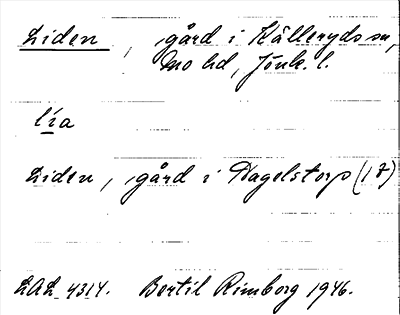 Liden, gård i Källeryds sn,
Mo hd, Jönk. l.
lia
Liden, gård i Hagelstorp (17)
LAL 4314. Bertil Rimborg 1946.